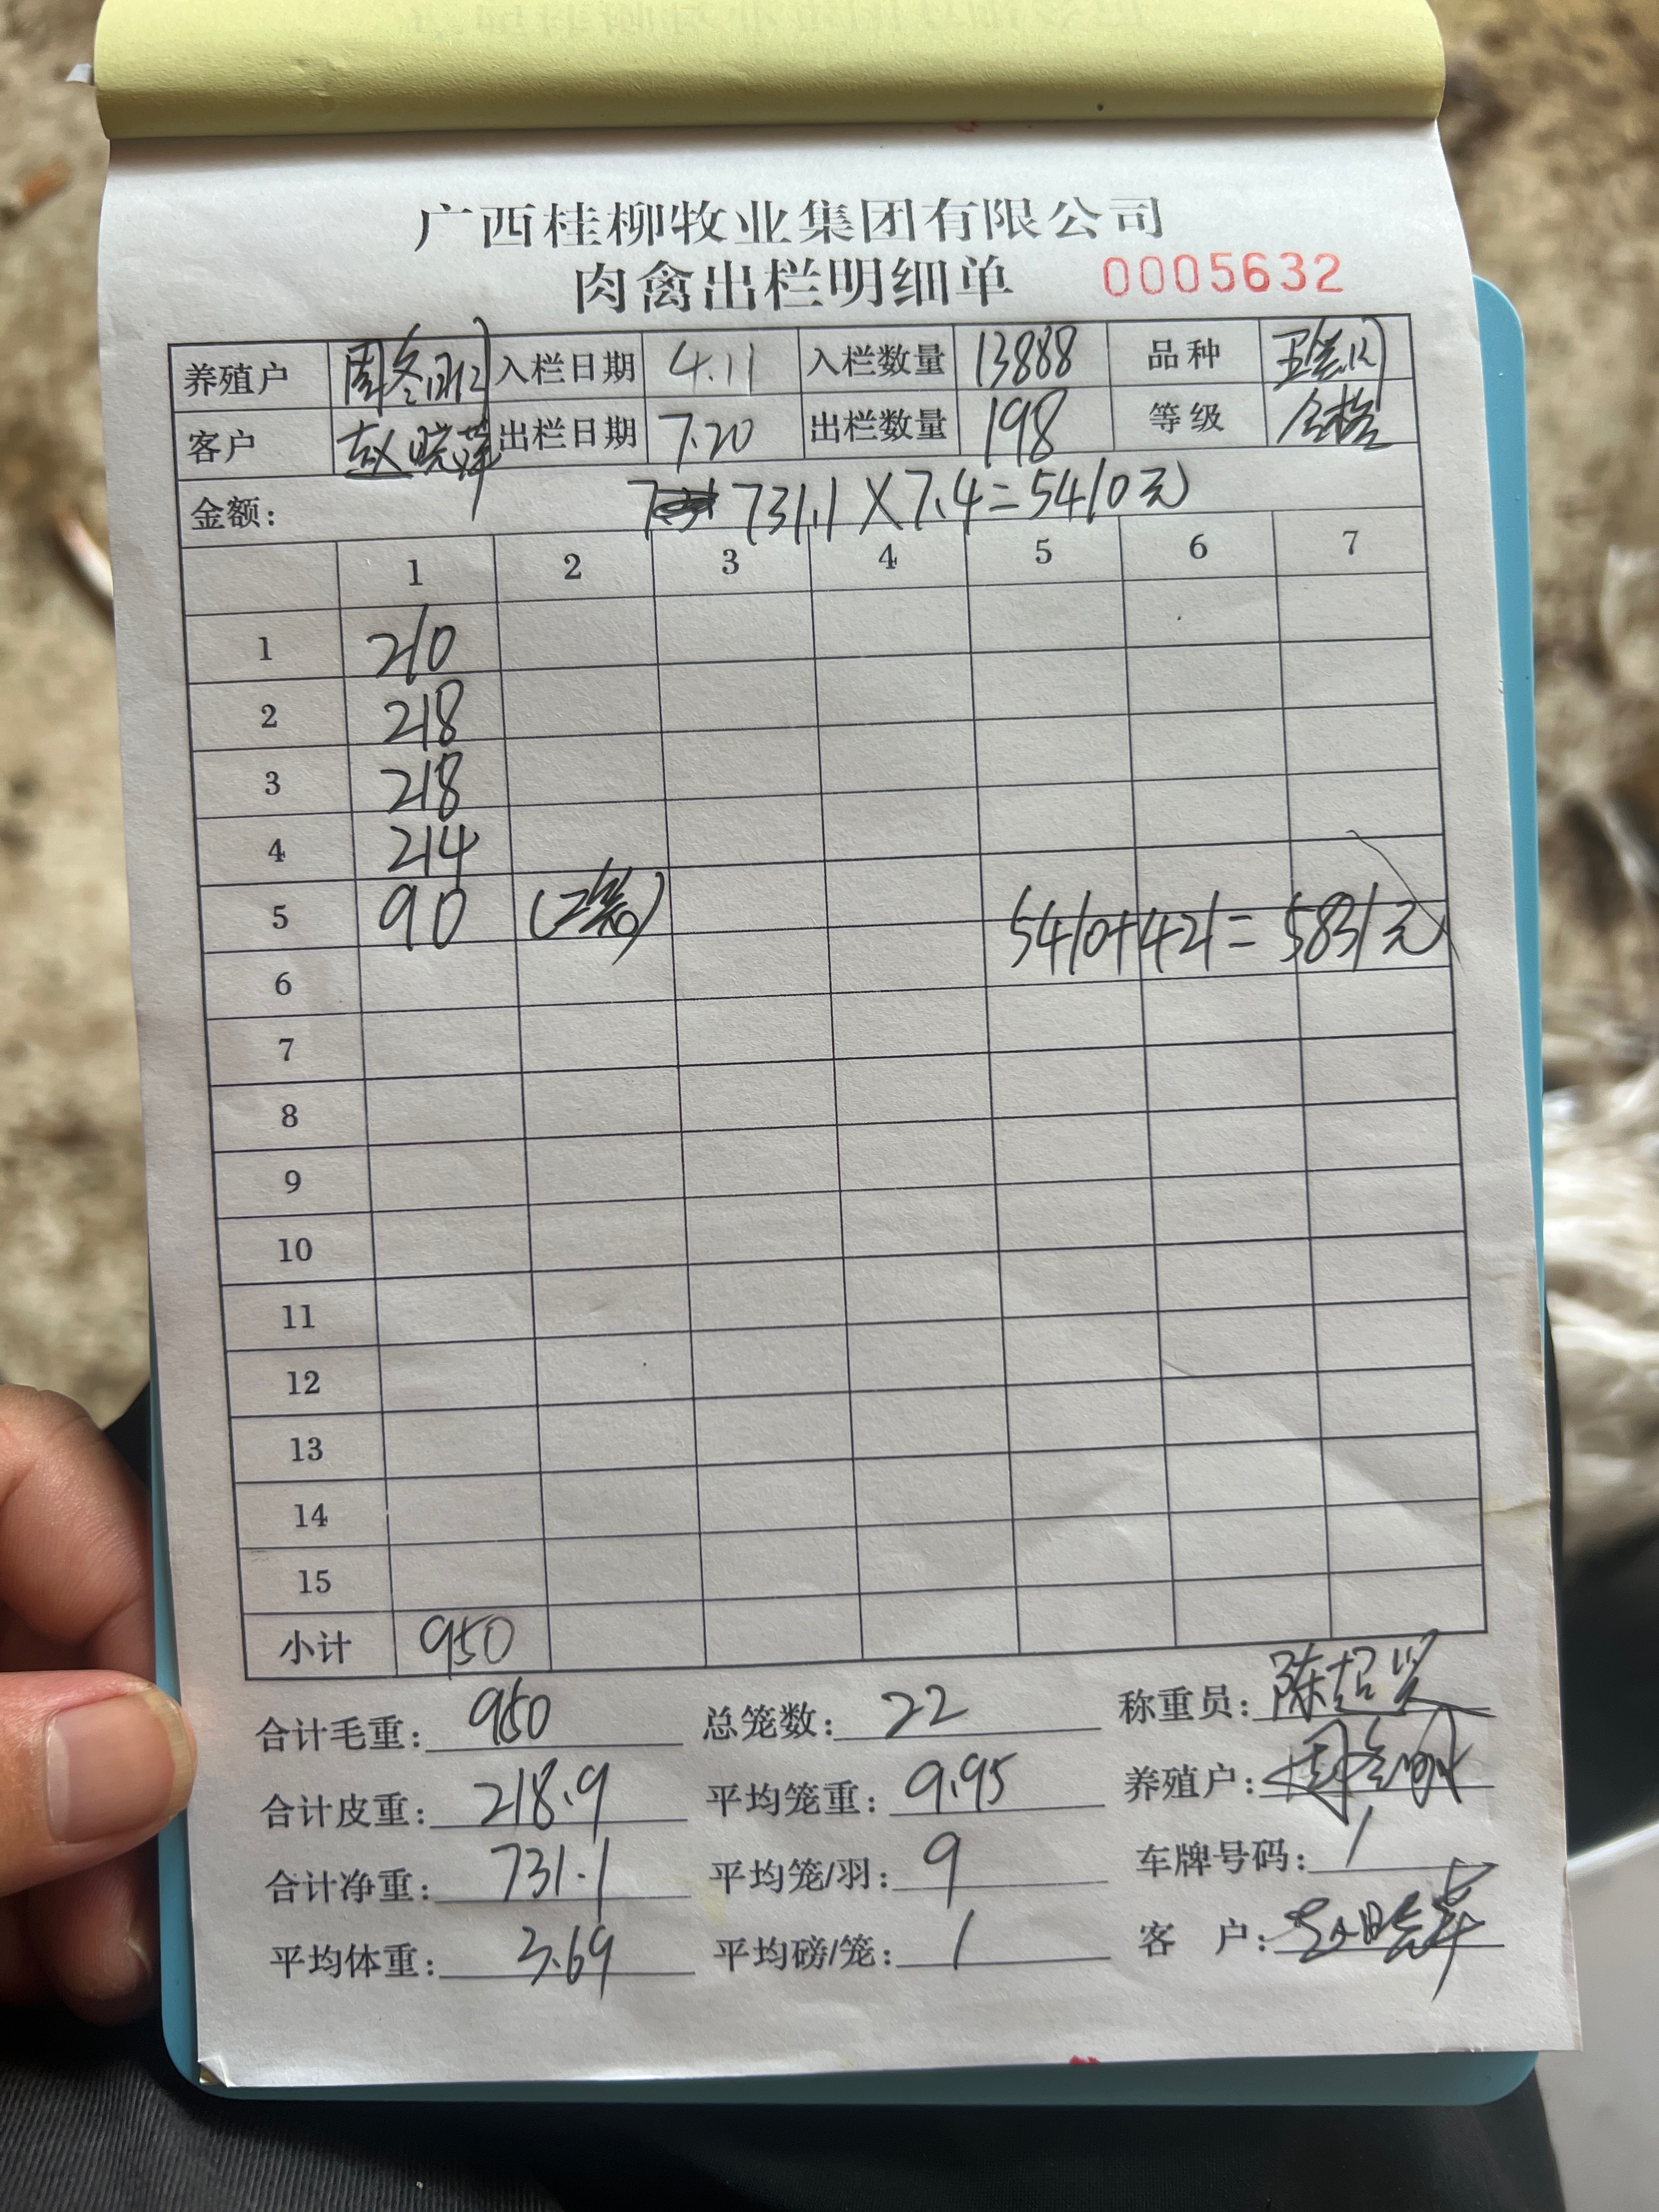 广西桂柳牧业集团有限公司
肉禽出栏明细单 0005632
养殖户 周冬 入栏日期 4.11 入栏数量 13888 品种
客户 赵晓萍 出栏日期 7.20 出栏数量 198 等级 合格
金额: 731.1×7.4=5410元
1 2 3 4 5 6 7
1 210
2 218
3 218
4 214
5 90 (2笼) 5410+421=5831元
6
7
8
9
10
11
12
13
14
15
小计 950
合计毛重: 950 总笼数: 22 称重员: 陈超
合计皮重: 218.9 平均笼重: 9.95 养殖户: 周
合计净重: 731.1 平均笼/羽: 9 车牌号码: /
平均体重: 3.69 平均磅/笼: / 客 户: 赵晓萍